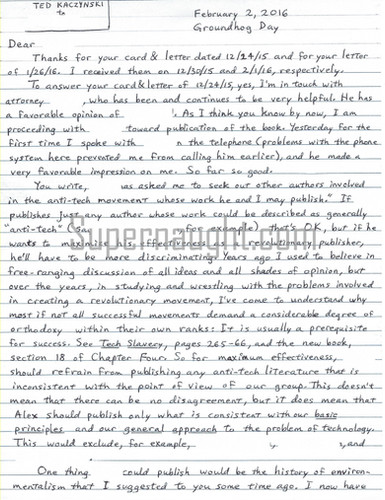 TED KACZYNSKI
to
February 2, 2016
Groundhog Day
Dear
Thanks for your card & letter dated 12/24/15 and for your letter
of 1/26/16. I received them on 12/30/15 and 2/1/16, respectively.
To answer your card & letter of 12/24/15, yes, I'm in touch with
attorney , who has been and continues to be very helpful. He has
a favorable opinion of . As I think you know by now, I am
proceeding with toward publication of the book. Yesterday for the
first time I spoke with n the telephone (problems with the phone
system here prevented me from calling him earlier), and he made a
very favorable impression on me. So far so good.
You write, " has asked me to seek out other authors involved
in the anti-tech movement whose work he and I may publish." If
publishes just any author whose work could be described as generally
"anti-tech" (say for example) that's OK, but if he
wants to maximize his effectiveness as a revolutionary publisher,
he'll have to be more discriminating. Years ago I used to believe in
free-ranging discussion of all ideas and all shades of opinion, but
over the years, in studying and wrestling with the problems involved
in creating a revolutionary movement, I've come to understand why
most if not all successful movements demand a considerable degree of
orthodoxy within their own ranks: It is usually a prerequisite
for success. See Tech Slavery, pages 265-66, and the new book,
section 18 of Chapter Four. So for maximum effectiveness,
should refrain from publishing any anti-tech literature that is
inconsistent with the point of view of our group. This doesn't
mean that there can be no disagreement, but it does mean that
Alex should publish only what is consistent with our basic
principles and our general approach to the problem of technology.
This would exclude, for example, , and
One thing could publish would be the history of environ-
mentalism that I suggested to you some time ago. I now have